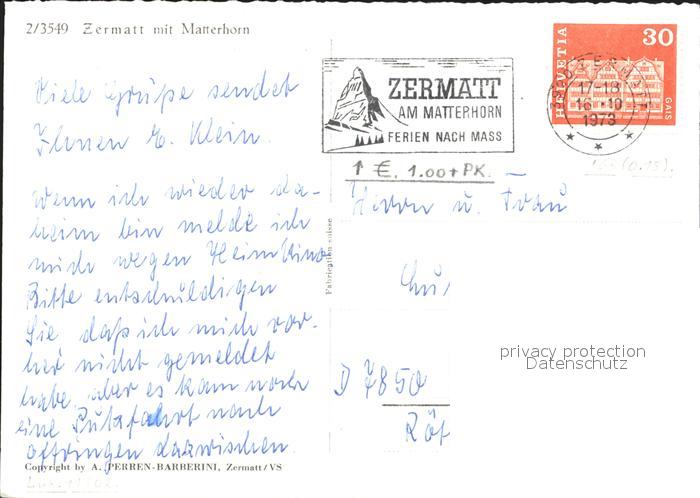 2/3549 Zermatt mit Matterhorn
Viele Grüße sendet
Ihnen E. Klein.
Wenn ich wieder da-
heim bin melde ich
mich wegen Heimkino
Bitte entschuldigen
Sie daß ich mich vor-
her nicht gemeldet
habe, aber es kam noch
eine Putzfahrt nach
Offringen dazwischen.
Copyright by A. PERREN-BARBERINI, Zermatt/VS
Fabrication suisse
ZERMATT
AM MATTERHORN
FERIEN NACH MASS
3920 ZERMATT
17-18
16.10
1973
HELVETIA
30
GAIS
↑ €. 1.00 + PK.
Herrn u. Frau
D 7850
privacy protection
Datenschutz